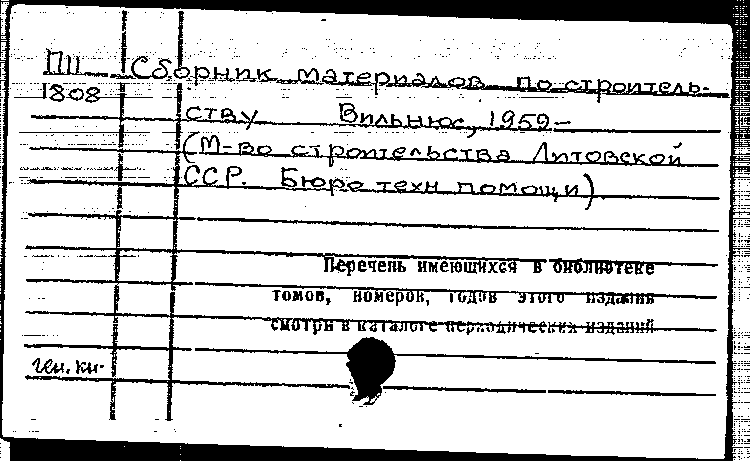 П11 Сборник материалов по строитель-
1808 ству Вильнюс, 1959-
(М-во строительства Литовской
ССР. Бюро техн помощи)
Перечень имеющихся в библиотеке
томов, номеров, годов этого издания
смотри в каталоге периодических изданий
ген. ки-